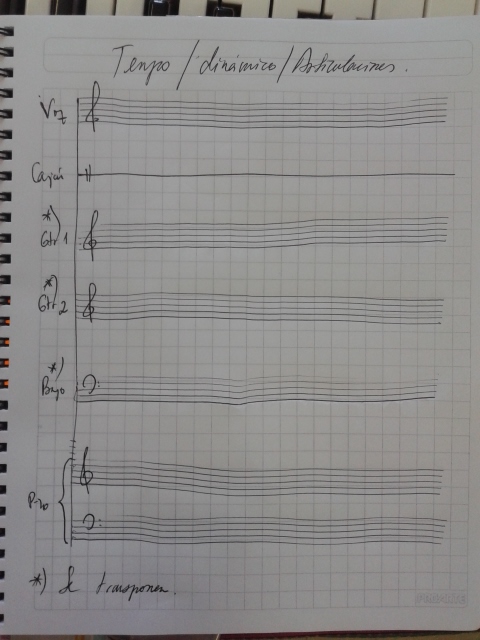 Tempo / dinámica / Articulaciones.
Voz
Cajón
*)
Gtr 1
*)
Gtr 2
*)
Bajo
Pno
*) Se transponen.